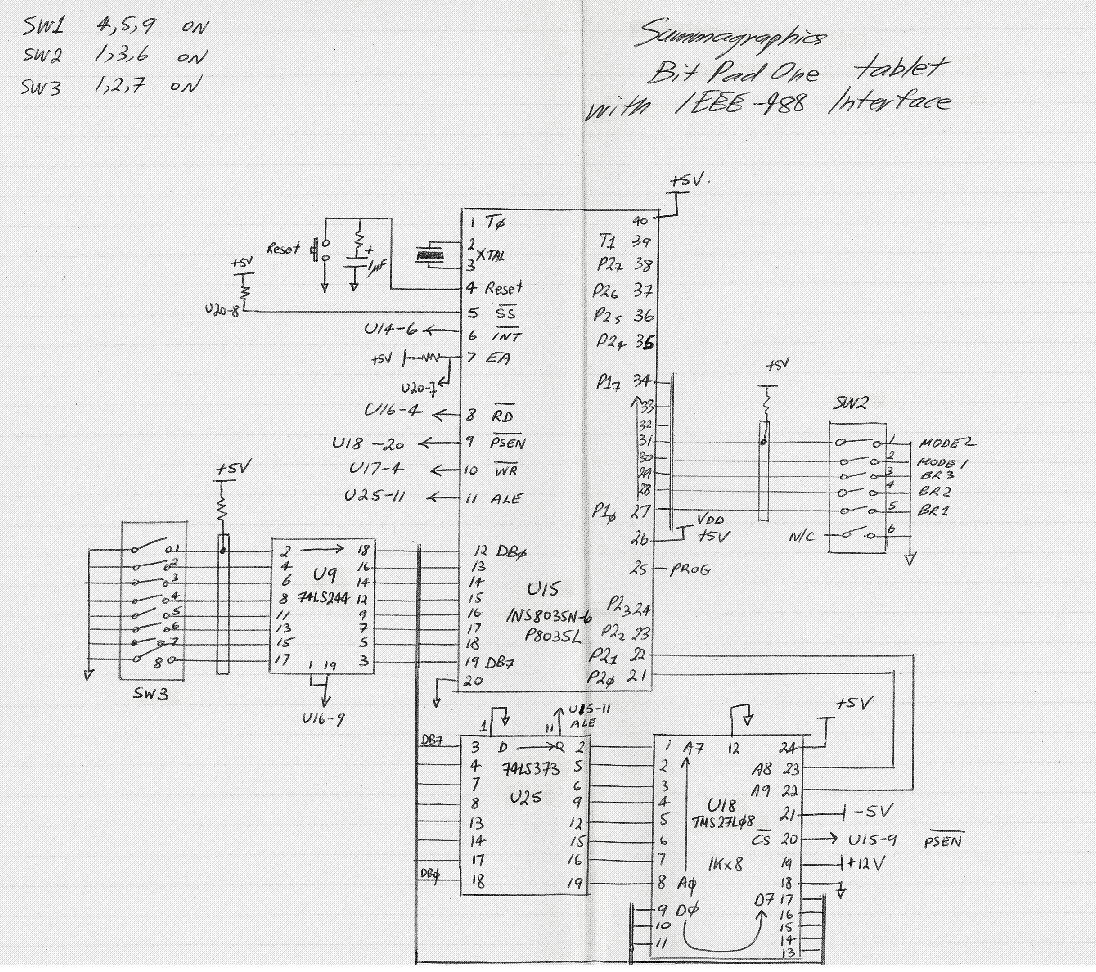 SW1 4,5,9 ON
SW2 1,3,6 ON
SW3 1,2,7 ON
Summagraphics
Bit Pad One tablet
with IEEE-488 Interface
+5V.
1 TØ
40
2
T1 39
XTAL
3
P27 38
Reset
+
1µF
4 Reset
P26 37
+5V
U20-8
5 SS
P25 36
U14-6
6 INT
P24 35
+5V
7 EA
U20-7
P17 34
+5V
U16-4
8 RD
33
SW2
U18-20
9 PSEN
32
31
1 MODE2
U17-4
10 WR
30
2 MODE1
29
3 BR3
U25-11
11 ALE
28
4 BR2
P1Ø 27
5 BR1
VDD
+5V
26
N/C
6
25
PROG
+5V
1
2
18
12 DBØ
2
4
16
13
3
6
U9
14
14
4
8
74LS244
12
15
5
11
9
16
6
13
7
17
7
15
5
18
8
17
1 19
3
19 DB7
20
SW3
U16-9
U15
INS8035N-6
P8035L
P23 24
P22 23
P21 22
P2Ø 21
1
11
U15-11
ALE
+5V
DB7
3 D
Q 2
1 A7
12
24
4
74LS373
5
2
A8 23
7
U25
6
3
A9 22
8
9
4
U18
21
-5V
13
12
5
TMS27LØ8
14
15
6
CS 20
U15-9 PSEN
17
16
7
1K x 8
19
+12V
DBØ
18
19
8 AØ
18
9 DØ
D7 17
10
16
11
15
14
13